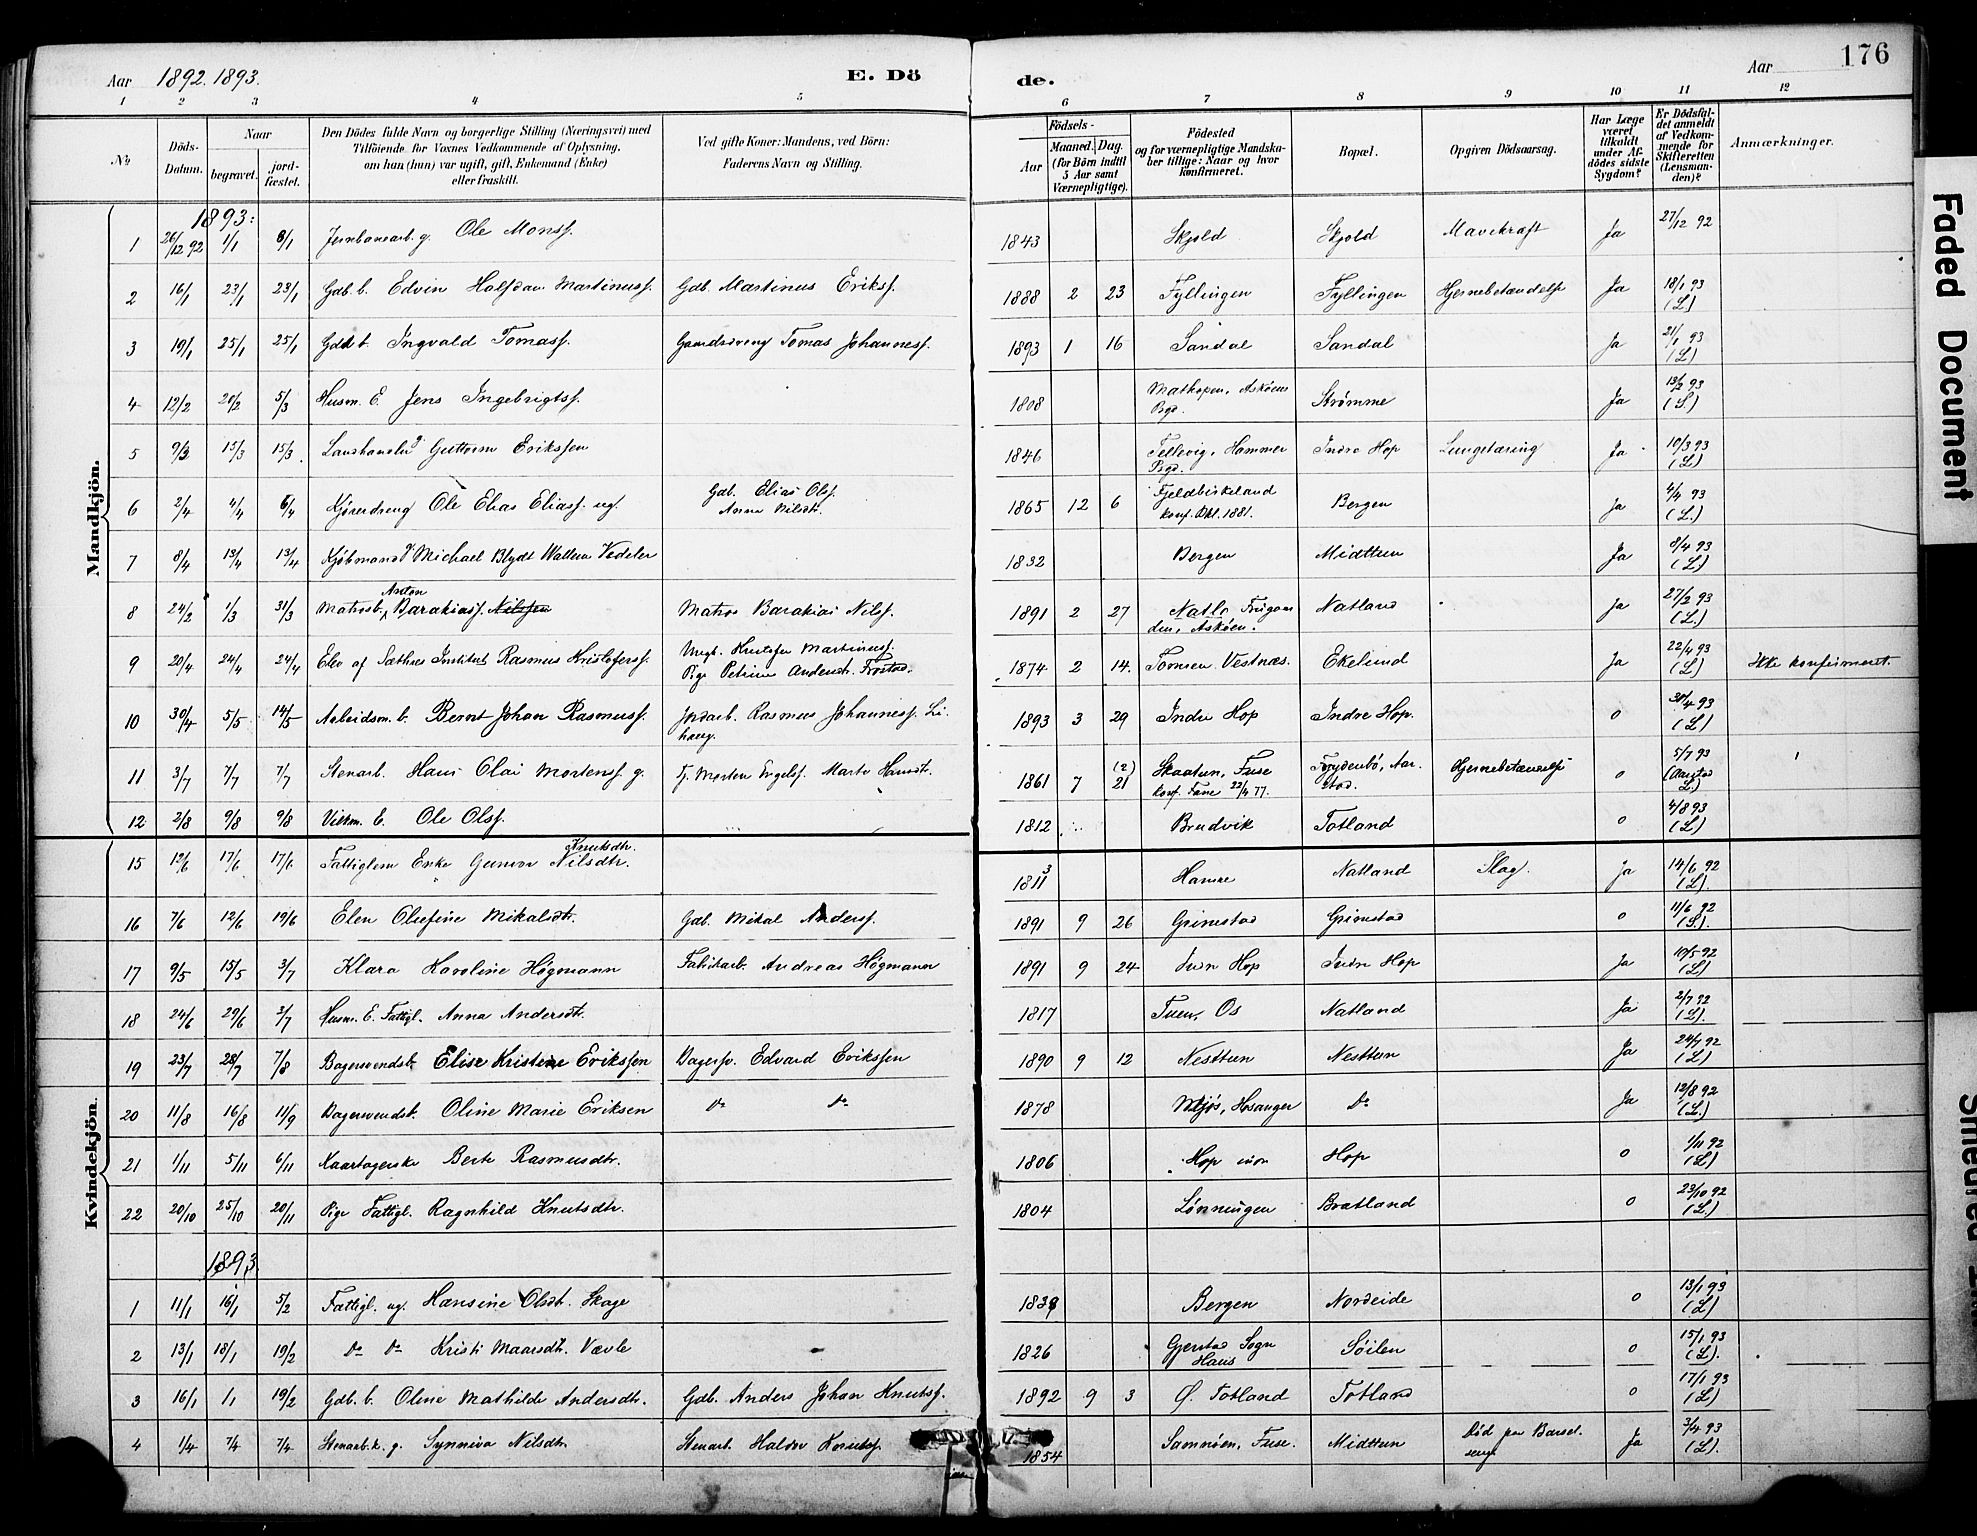 Aar 1892. 1893. E. Dö de. Aar 176
1 2 3 4 5 6 7 8 9 10 11 12
No
Döds-Datum.
Naar
begravet.
jordfæstet.
Den Dödes fulde Navn og borgerlige Stilling (Næringsvei) med
Tilföiende for Voxnes Vedkommende af Oplysning,
om han (hun) var ugift, gift, Enkemand (Enke)
eller fraskilt.
Ved gifte Koner: Mandens, ved Börn:
Faderens Navn og Stilling.
Födsels-
Aar
Maaned. Dag.
(for Börn indtil
5 Aar samt
Værnepligtige).
Födested
og for værnepligtige Mandska-
ber tillige: Naar og hvor
konfirmeret.
Bopæl.
Opgiven Dödsaarsag.
Har Læge
været
tilkaldt
under Af-
dödes sidste
Sygdom?
Er Dödsfal-
det anmeldt
af Vedkom-
mende for
Skifteretten
(Lensman-
den)?
Anmærkninger.
Mandkjön.
1893:
1 26/12 92 1/1 8/1 Jernbanearb. g. Ole Monsf. 1843 Skjold Skjold Mavekræft Ja 27/12 92
2 16/1 23/1 23/1 Gdb. b. Edvin Halfdan Martinusf. Gdb. Martinus Eriksf. 1888 2 23 Fyllingen Fyllingen Hjernebetændelse Ja 18/1 93 (L)
3 19/1 25/1 25/1 Gdb. b. Ingvald Tomasf. Gaardsdreng Tomas Johannesf. 1893 1 16 Sandal Sandal Ja 21/1 93 (L)
4 12/2 20/2 5/3 Husm. E. Jens Ingebrigtsf. 1808 Mathopen, Askøens Pgd. Strømme Ja 13/2 93 (L)
5 9/3 15/3 15/3 Landhandler g. Guttorm Erikssen 1846 Tellevig, Hammer Pgd. Indre Hop Lungetæring Ja 10/3 93 (L)
6 2/4 4/4 6/4 Kjøredreng Ole Elias Eliasf. ug. Gdb. Elias Olsf. Anna Nilsdtr. 1865 12 6 Fjeldbirkeland konf. Bkl. 1881. Bergen Ja 4/4 93 (L.)
7 8/4 13/4 13/4 Kjøbmand g Michael Blydt Wattum Vedeler 1832 Bergen Midttun Ja 8/4 93 (L.)
8 24/2 1/3 31/3 Matrosb. Anton Barakiasf. Nilssen Matros Barakias Nilsf. 1891 2 27 Natl. Askøen. Natland Ja 27/2 93 (L.)
9 20/4 24/4 24/4 Elev af Sæthres Institut Rasmus Kristofersf. Ungk. Kristofer Martinusf. Pige Petrine Andersdt. Frostad. 1874 2 14. Tomren Vestnæs. Ekelund Ja 22/4 93 (L) Ikke konfirmeret.
10 30/4 5/5 14/5 Arbeidsm. b. Bernt Johan Rasmusf. Jordarb. Rasmus Johannesf. Lihaug. 1893 3 29 Indre Hop Indre Hop. o 30/4 93 (L)
11 3/7 7/7 7/7 Stenarb. Hans Olai Mortensf. g. Fj. Morten Engelsf. Marte Hansdt. 1861 7 (2) 21 Skaatun, Fuse konf. Fane 22/4 77. Frydenbö, Aarstad. Hjernebetændelse o 5/7 93 (Aarstad L.)
12 2/8 9/8 9/8 Vilkm. E. Ole Olsf. 1812 Brudvik Totland o 4/8 93 (L)
Kvindekjön.
15 12/6 17/6 17/6 Fattiglem Enke Gunvor Knutsdtr. Nilsdtr. 1811 3 Hamre Natland Slag. Ja 14/6 92 (L).
16 7/6 12/6 19/6 Elen Olufine Mikalsdt. Gdb. Mikal Andersf. 1891 9 26 Grimestad Grimstad o 11/6 92 (L).
17 9/5 15/5 3/7 Klara Karoline Högmann Fabrikarb. Andreas Högmann 1891 9 24 Indr Hop Indr Hop Ja 10/5 92 (L)
18 24/6 29/6 3/7 Husm. E. Fattigl. Anna Andersdt. 1817 Tuen, Os Natland Ja 2/7 92 (L).
19 23/7 28/7 7/8 Bagersvendsb. Elise Kristine Erikssen Bagersv. Edvard Erikssen 1890 9 12 Nesttun Nesttun Ja 24/7 92 (L)
20 11/8 16/8 11/9 Bagersvendst. Oline Marie Eriksen do do 1878 Mjøs, Hosanger do Ja 12/8 92 (L.)
21 1/11 5/11 6/11 Kaartagerske Berte Rasmusdtr. 1806 Hop indr Hop o 1/11 92 (L)
22 20/10 25/10 20/11 Pige Fattigl. Ragnhild Knutsdtr. 1804 Lønningen Bratland o 23/10 92 (L.)
1893
1 11/1 16/1 5/2 Fattigl. ug. Hansine Olsdt. Skage 1839 Bergen Nordeide o 13/1 93 (L)
2 13/1 18/1 19/2 do do Kristi Maarsdt. Vævle 1826 Gjerstad Sogn Haus Söilen o 15/1 93 (L).
3 16/1 1/1 19/2 Gdb. b. Oline Mathilde Andersdtr. Gdb. Anders Johan Knutsf. 1892 9 3 Ø. Totland Totland o 17/1 93 (L)
4 1/4 7/4 7/4 Stenarb. k. g. Synneva Nilsdtr. Stenarb. Haldor Knutsf. 1854 Samnøen, Fuse. Midttun Död paa Barselseng Ja 3/4 93 (L).
Faded Document
Smeared